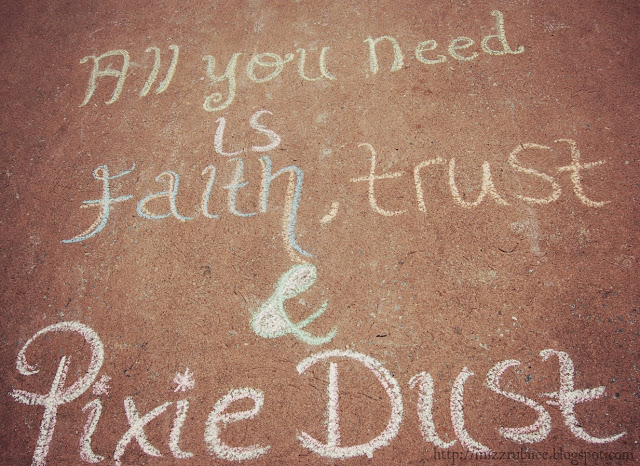 All you need
is
Faith, trust
&
Pixie Dust
http://mizzrubiice.blogspot.com